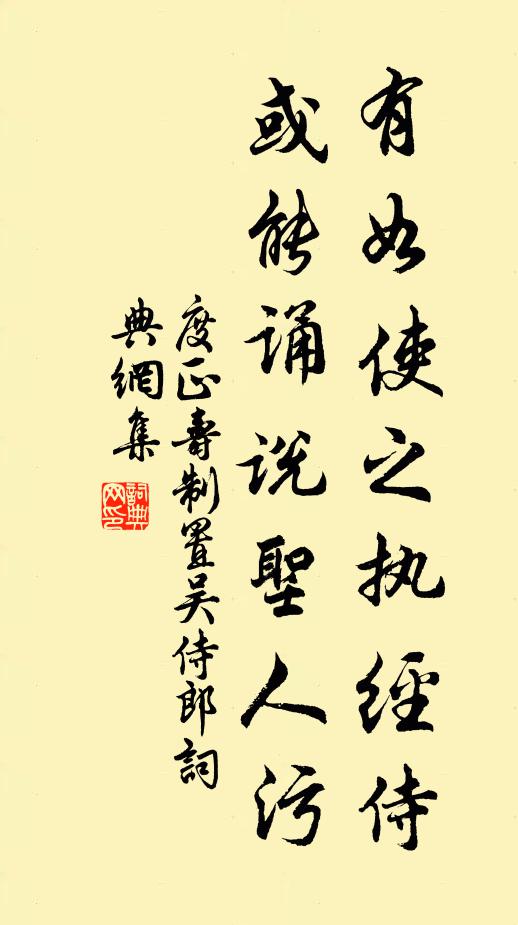 有如使之执經侍
或能诵说聖人污
度正壽制置吴侍郎詞
典網集
詞典
网印